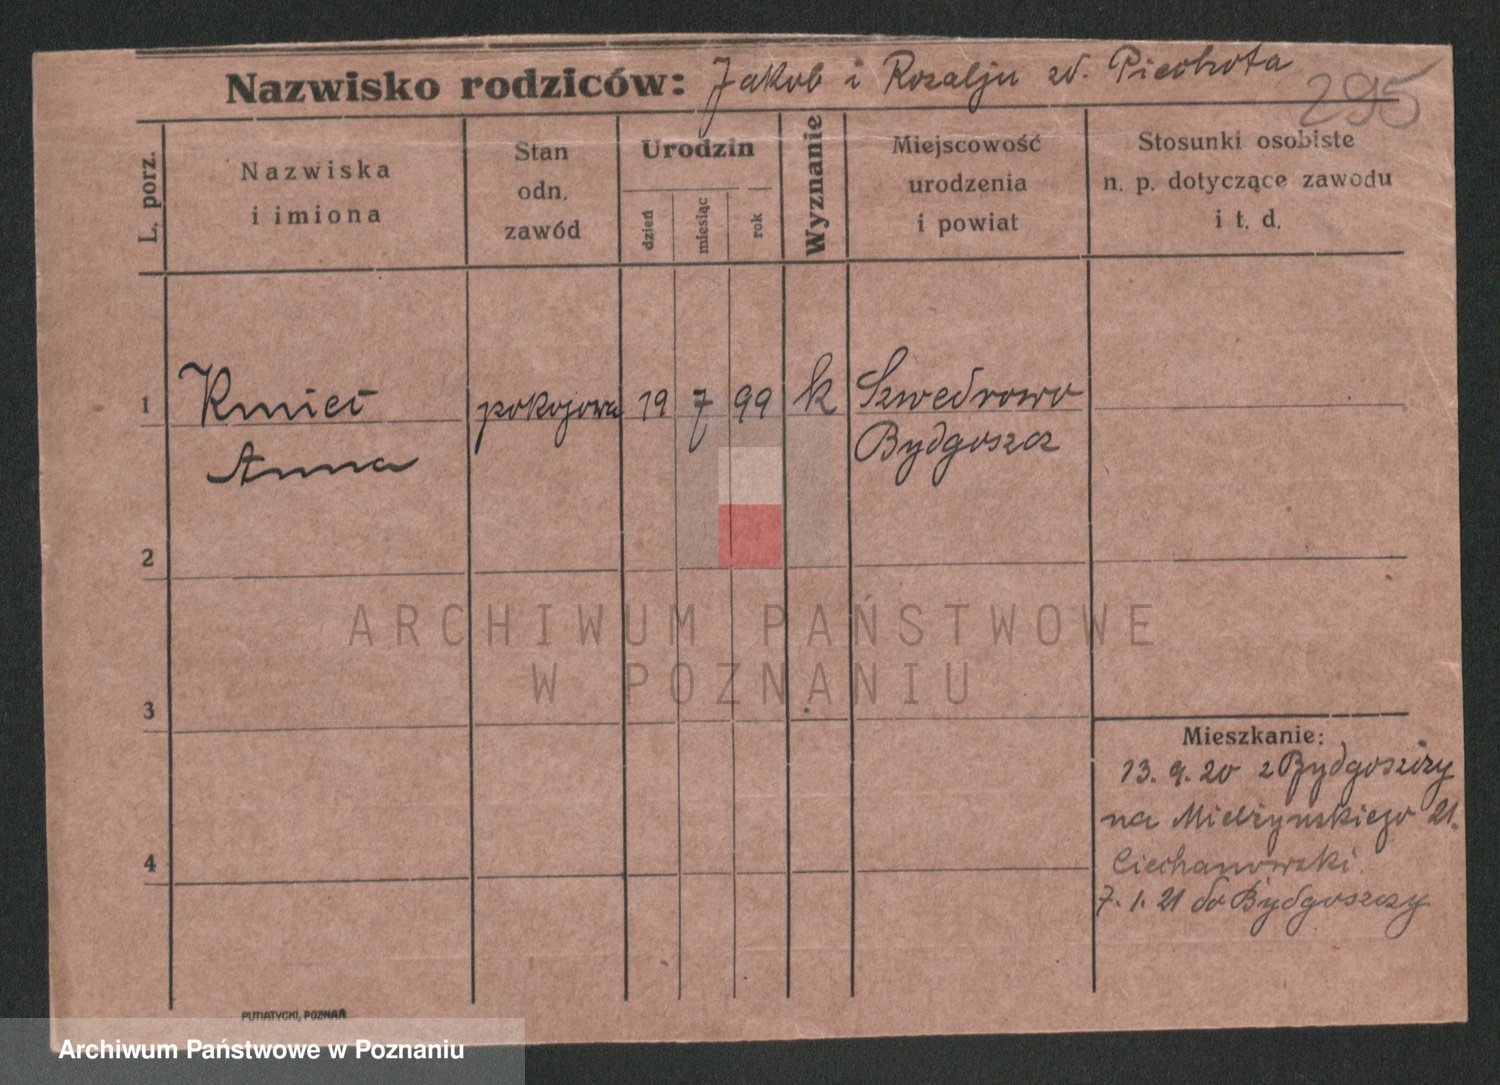 Nazwisko rodziców: Jakob i Rozalju zd. Piechota
295
L. porz.
Nazwiska
i imiona
Stan
odn.
zawód
Urodzin
dzień
miesiąc
rok
Wyznanie
Miejscowość
urodzenia
i powiat
Stosunki osobiste
n. p. dotyczące zawodu
i t. d.
1
Kmieć
Anna
pokojowa
19
7
99
k
Szwedrowo
Bydgoszcz
2
ARCHIWUM PAŃSTWOWE
W POZNANIU
3
Mieszkanie:
13. 9. 20 z Bydgoszczy
na Mielżynskiego 21.
Ciechanowski.
7. 1. 21 do Bydgoszczy
4
PUTIATYCKI, POZNAŃ
Archiwum Państwowe w Poznaniu